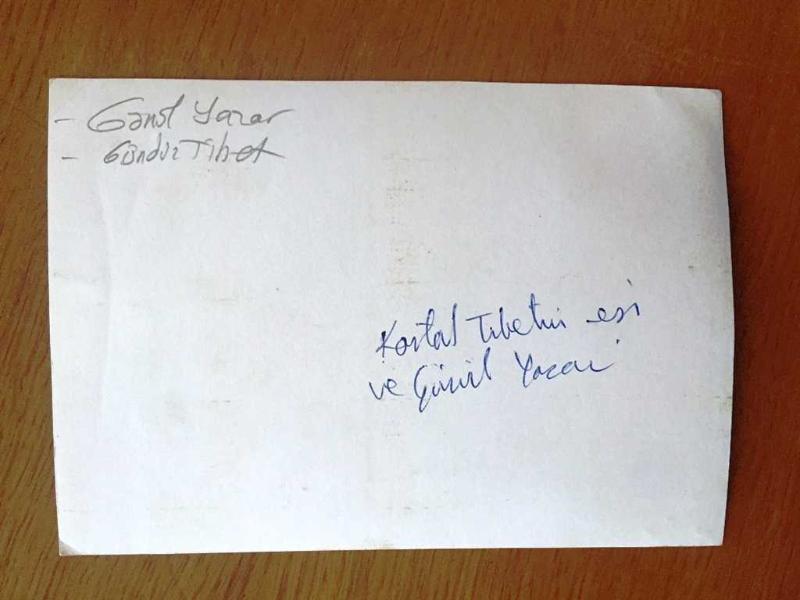 - Gönül Yazar
- Gündüz Tibet
Kartal Tibetin eşi
ve Gönül Yazar